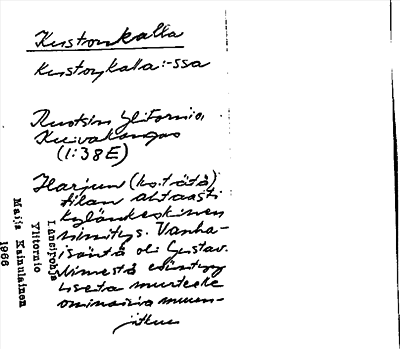 Kustonkalla
Kustonkalla:-ssa
Ruotsin Ylitornio,
Kuivakangas
(1:38E)
Harjun (ks. tätä)
tilan ahtaasti
kyläkeskinen
nimitys. Vanha-
isäntä oli Gustav.
Nimestä
murteelle
ominaisia muun-
jatkuu
Länsipohja
Ylitornio
Maija Kainulainen
1966